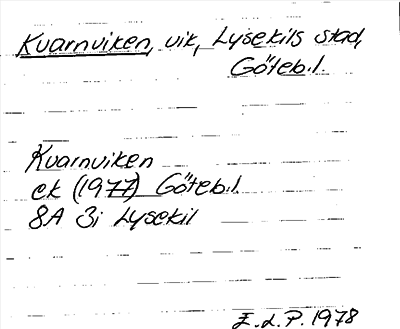 Kvarnviken, vik, Lysekils stad,
Göteb.l.
Kvarnviken
ek (1977) Göteb.l.
8A 3i Lysekil
E.L.P. 1978